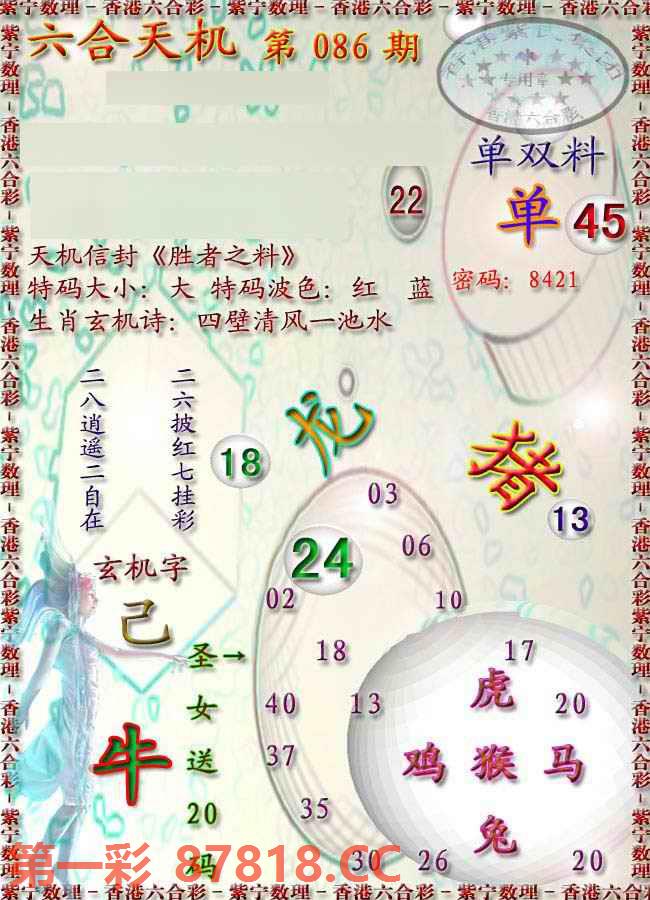 紫宁数理-香港六合彩-紫宁数理-香港六合彩-紫宁数理-香港六合彩
六合天机 第 086 期
专用章
香港六合彩
单双料
22
单 45
天机信封《胜者之料》
特码大小：大 特码波色：红 蓝
密码：8421
生肖玄机诗：四壁清风一池水
二八逍遥二自在
二六披红七挂彩
龙
猪
18
13
03
24
06
玄机字
02
10
己
圣女送20码
→
18
17
虎
40
13
20
牛
37
鸡 猴 马
35
兔
30
26
20
第一彩 87818.CC
紫宁数理-香港六合彩-紫宁数理-香港六合彩-紫宁数理